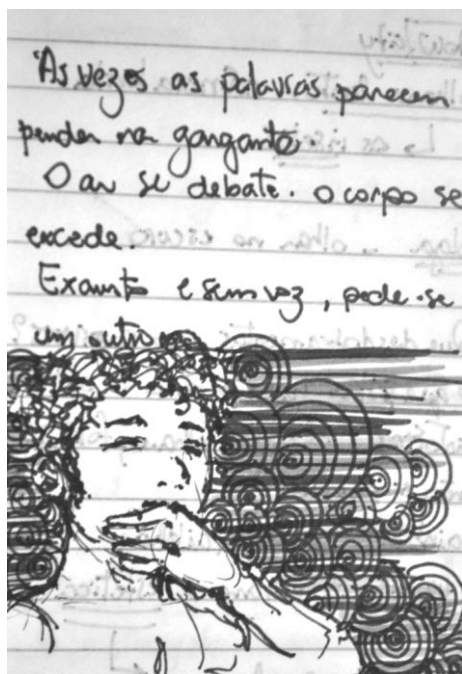 Às vezes as palavras parecem
prender na garganta.
O ar se debate. o corpo se
excede.
Exausto e sem voz, pede-se
um outro